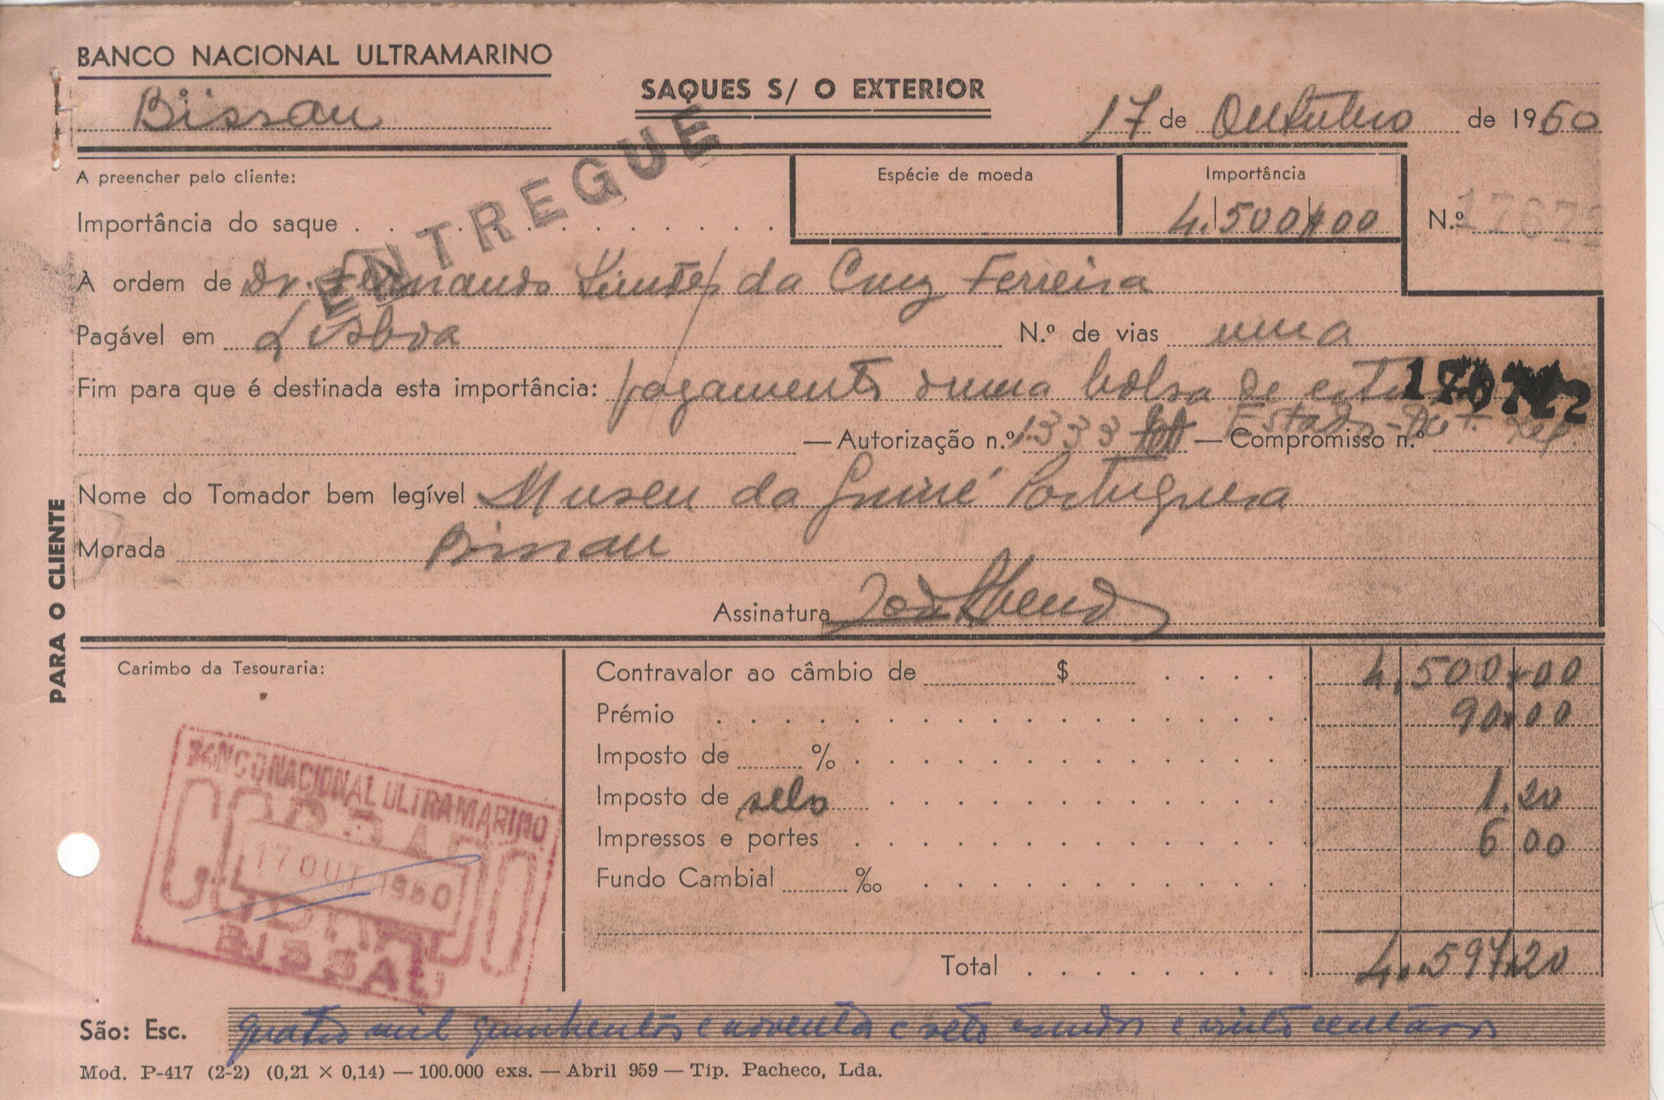 BANCO NACIONAL ULTRAMARINO
SAQUES S/ O EXTERIOR
Bissau
17 de Outubro de 1960
ENTREGUE
A preencher pelo cliente:
Espécie de moeda
Importância
Importância do saque
4.500$00
N.º 17672
À ordem de Dr. Fernando Simões da Cruz Ferreira
Pagável em Lisboa N.º de vias uma
Fim para que é destinada esta importância: pagamento duma bolsa de
— Autorização n.º 1333 — Compromisso n.º
Estado
Nome do Tomador bem legível Museu da Guiné Portuguesa
Morada Bissau
Assinatura
PARA O CLIENTE
Carimbo da Tesouraria:
BANCO NACIONAL ULTRAMARINO
17 OUT 1960
BISSAU
Contravalor ao câmbio de $ 4.500.00
Prémio 90.00
Imposto de %
Imposto de selo 1.20
Impressos e portes 6 00
Fundo Cambial ‰
Total 4.597.20
São: Esc. quatro mil quinhentos e noventa e sete escudos e vinte centavos
Mod. P-417 (2-2) (0,21 × 0,14) — 100.000 exs. — Abril 959 — Tip. Pacheco, Lda.